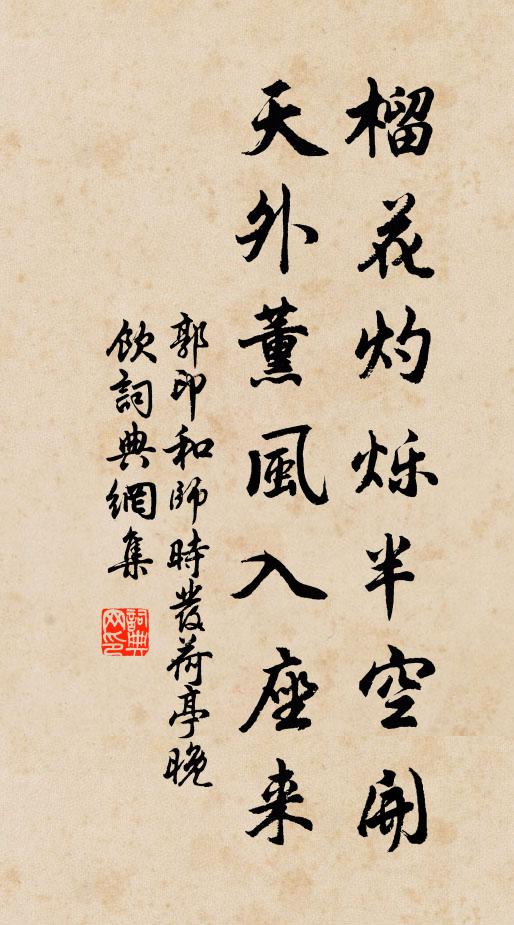 榴花灼烁半空開
天外薰風入座来
郭印和師時發荷亭晚
飲詞典網集
詞典
网印